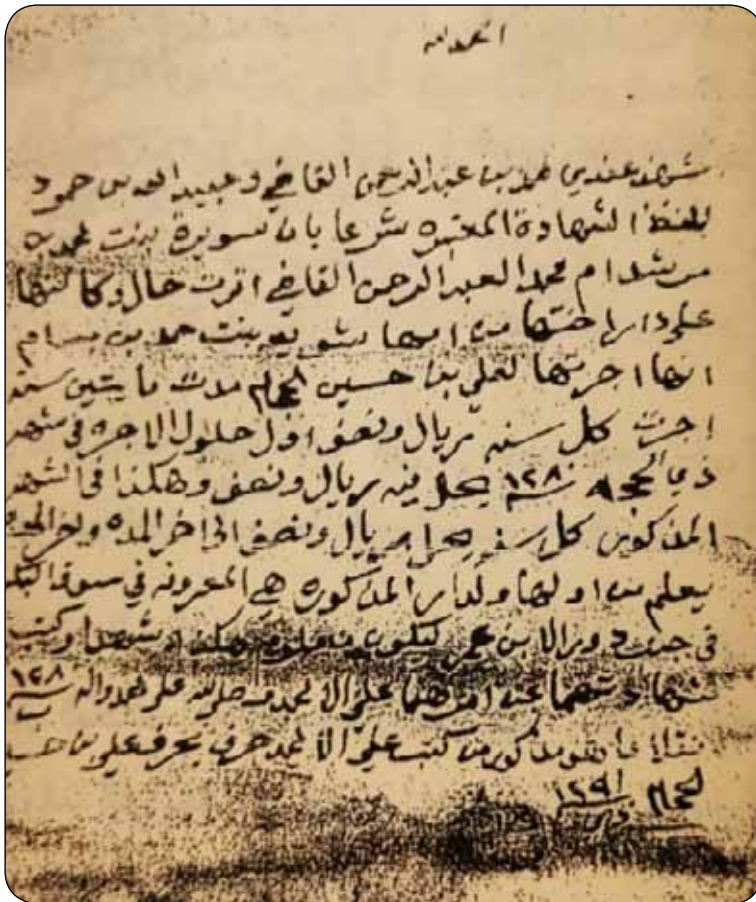 الحمد لله
شهد عندي محمد بن عبد الرحمن القاضي وعبيد الله بن حمود
بلفظ الشهادة المعتبره شرعا بان نويرة بنت محمد بن
مرشد ام محمد العبد الرحمن القاضي اقرت حال وكالتها
على دار اختها من امها بنت حمد بن بسام
انها اجرتها لعلي بن حسين الحجام مدت مايتين سنه
اجرت كل سنه ريال ونصف اول حلول الاجره في شهر
ذي الحجه سنة ١٢٨ يحل فيه ريال ونصف وهكذا في الشهر
المذكور كل سنه يحل ريال ونصف الى اخر المده واخر المده
يعلم من اولها ولدار المذكوره هي المعروفه في سوق
في دور الابن عمر ليكون معلوم هكذا شهدا وكتب
شهادتهما عن امرهما علي الا لمحمد وصلى الله على محمد واله ١٢٨
نقله ما هو مذكور من كتب علي الا لمحمد حرف بحرف علي بن
الحجام ١٢٩١